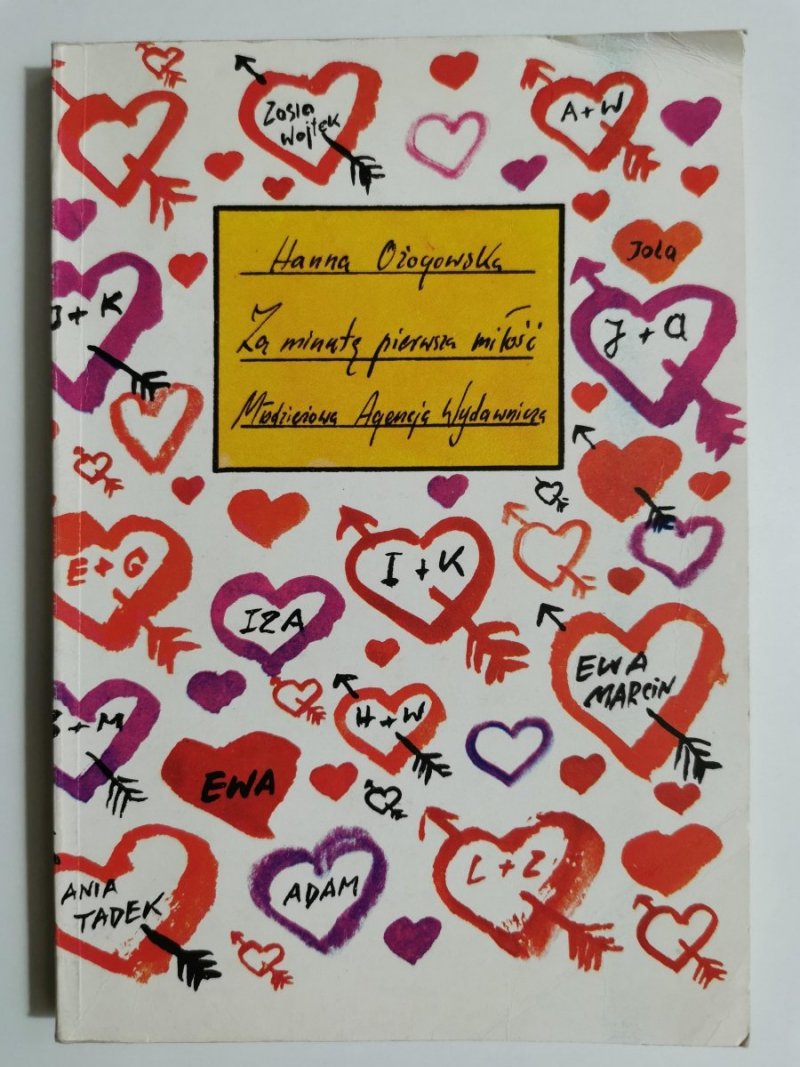 Zosia
Wojtek
A+W
Hanna Ożogowska
Jola
J+K
Za minutę pierwsza miłość
J+O
Młodzieżowa Agencja Wydawnicza
E+G
I+K
IZA
EWA
MARCIN
+M
H+W
EWA
L+Z
ANIA
TADEK
ADAM